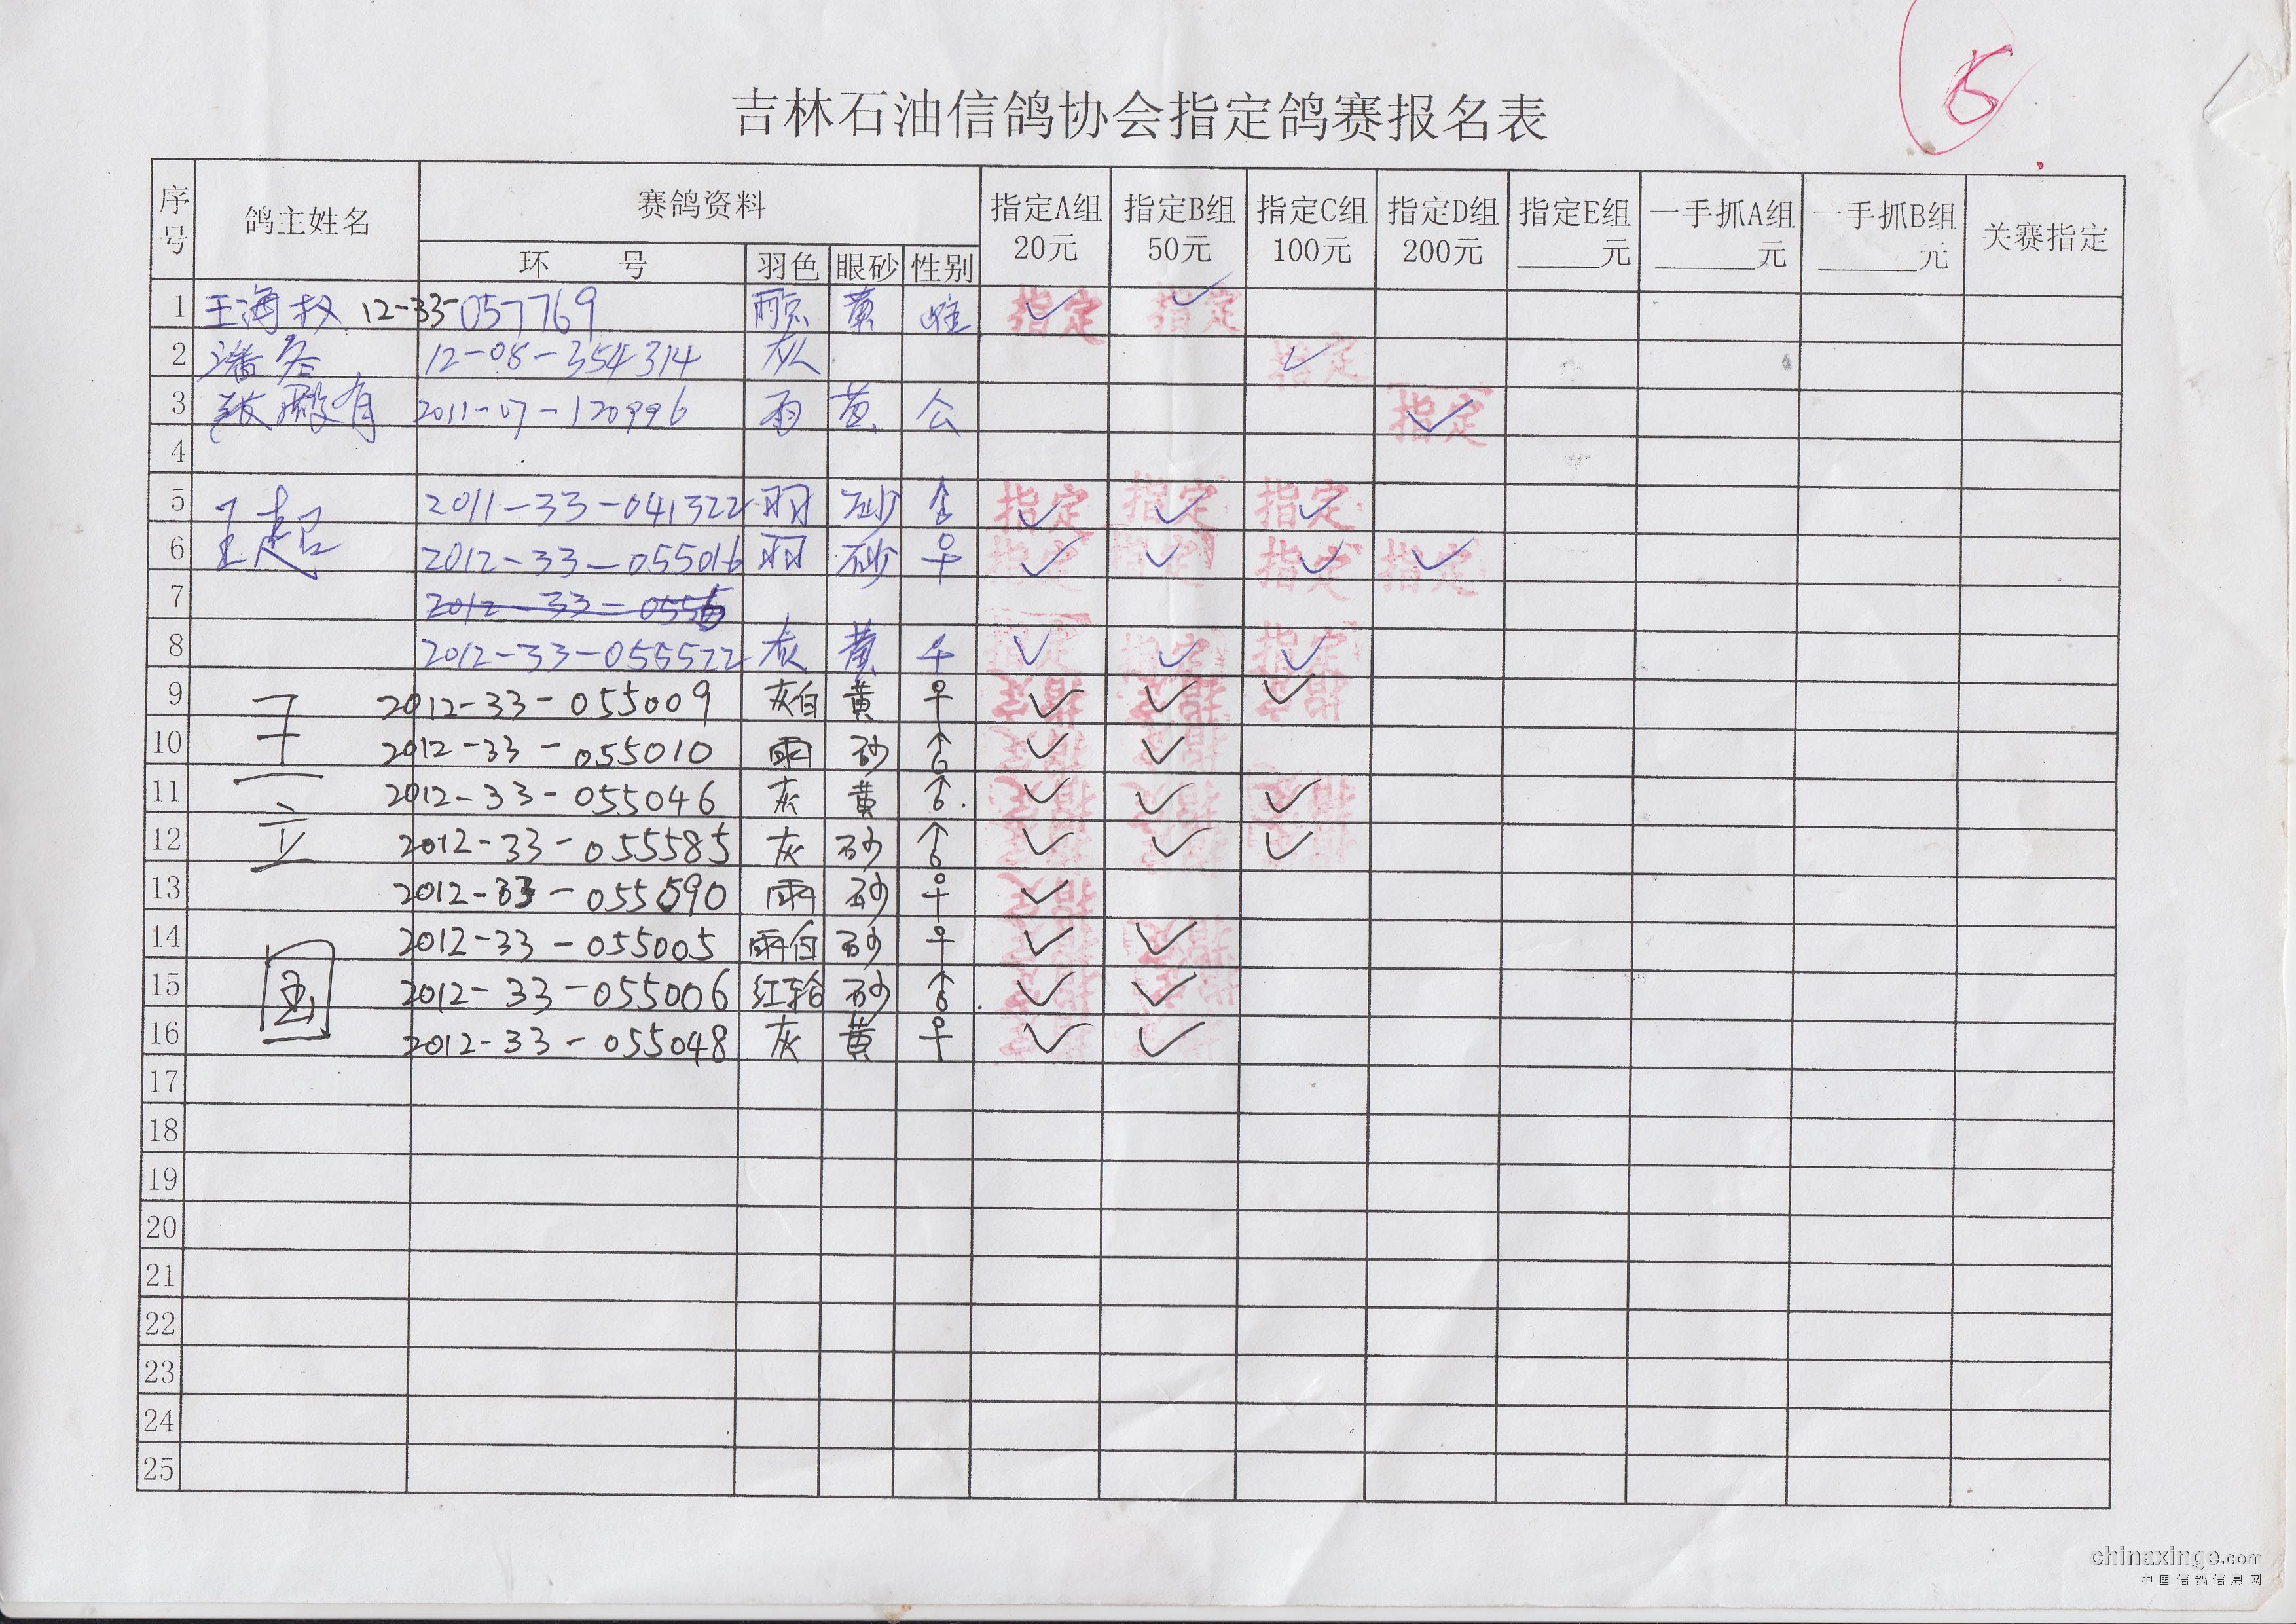 5
吉林石油信鸽协会指定鸽赛报名表
序号 鸽主姓名 赛鸽资料 指定A组 20元 指定B组 50元 指定C组 100元 指定D组 200元 指定E组 ____元 一手抓A组 ____元 一手抓B组 ____元 关赛指定
环 号 羽色 眼砂 性别
1 王海权 12-33-057769 黄 雌 指定 ✓ 指定 ✓
2 潘冬 12-08-354314 灰 指定 ✓
3 张殿有 2011-07-120996 雨 黄 公 指定 ✓
4
5 王超 2011-33-041322 羽 砂 ♂ 指定 ✓ 指定 ✓ 指定 ✓
6 2012-33-055016 羽 砂 ♀ 指定 ✓ 指定 ✓ 指定 ✓ 指定 ✓
7
8 2012-33-055572 灰 黄 ♀ 指定 ✓ 指定 ✓ 指定 ✓
9 王立国 2012-33-055009 灰白 黄 ♀ 指定 ✓ 指定 ✓ 指定 ✓
10 2012-33-055010 雨 砂 ♂ 指定 ✓ 指定 ✓
11 2012-33-055046 灰 黄 ♂ 指定 ✓ 指定 ✓ 指定 ✓
12 2012-33-055585 灰 砂 ♂ 指定 ✓ 指定 ✓ 指定 ✓
13 2012-33-055590 雨 砂 ♀ 指定 ✓
14 2012-33-055005 雨白 砂 ♀ 指定 ✓ 指定 ✓
15 2012-33-055006 红轮 砂 ♂ 指定 ✓ 指定 ✓
16 2012-33-055048 灰 黄 ♀ 指定 ✓ 指定 ✓
17
18
19
20
21
22
23
24
25
chinaxinge.com
中国信鸽信息网